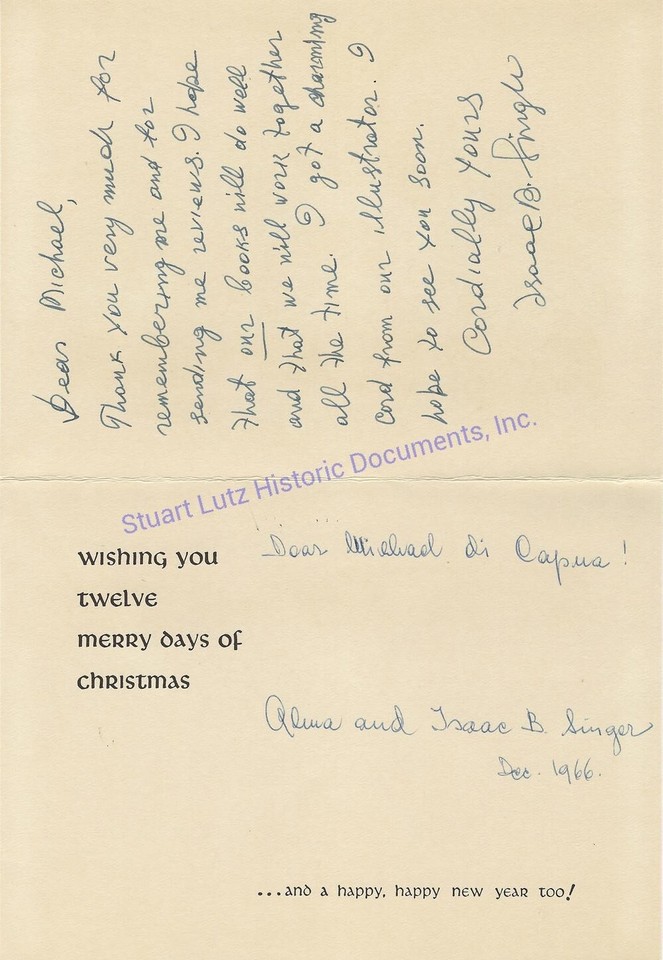 Dear Michael,
Thank you very much for
remembering me and for
sending me reviews. I hope
that our books will do well
and that we will work together
all the time. I got a charming
card from our illustrator. I
hope to see you soon.
Cordially yours
Isaac B. Singer
Stuart Lutz Historic Documents, Inc.
wishing you
twelve
merry days of
christmas
Dear Michael di Capua!
Alma and Isaac B. Singer
Dec. 1966.
...and a happy, happy new year too!